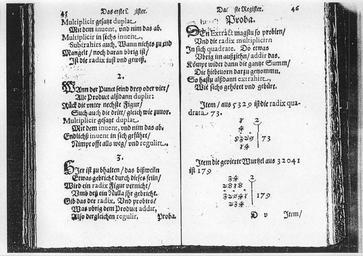 45 Das erste Register.
Multiplicir gesant duplat,
Mit dem invent, und nim das ab.
Multiplicir in sichs invent,
Subtrahirs auch, Wann nichts zu end
Mangelt / noch daran übrig ist /
Ist die radix just und gewiß.
2.
Wann der Punct seind drey oder vier /
All Product alsdann duplir:
Rück die unter nechste Figur /
Such auch die dritt / gleich wie zuvor.
Multiplicir gesant duplat,
Mit dem invent, und nim das ab.
Endlichs invent in sich geführt /
Nimpt offt all weg / und regulirt.
3.
Hier ist zu bhalten / das bißweilen
Etwas gebricht durch dieses
Wird ein radix Figur vernicht /
Und deß ein Nulla ihr gebricht.
Ob das der radix, Und probirs
Was übrig dem Product addir,
Also dergleichen regulir. Proba.
Das erste Register. 46
Proba.
Den Extract magstu so probirn /
Und die radix multiplicirn
In sich quadrate. Do etwas
Übrig im außziehn / addir das.
Kömpt wider dann die gantz Summ /
Die hiebevorn darzu genommn.
So hastu alsdann extrahirt,
Wie sichs gehört und gebürt.
Item / aus 5329 ist die radix quadrata 73.
73
Item die gevierte Wurtzel aus 32041
ist 179
179
D v Item /